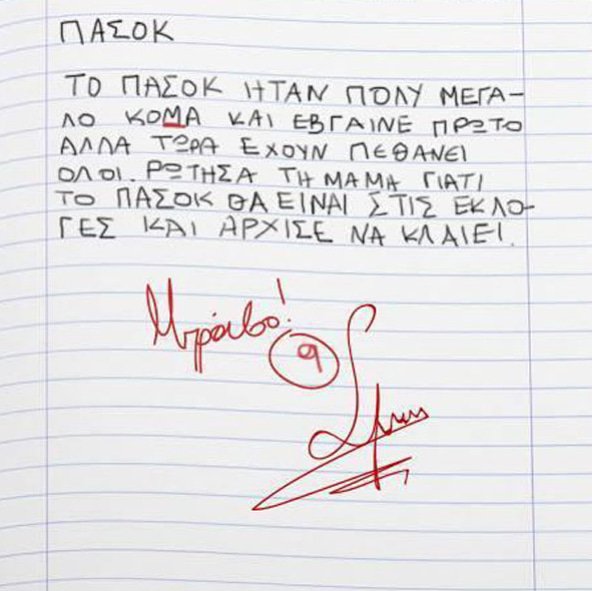 ΠΑΣΟΚ
ΤΟ ΠΑΣΟΚ ΗΤΑΝ ΠΟΛΥ ΜΕΓΑ-
ΛΟ ΚΟΜΑ ΚΑΙ ΕΒΓΑΙΝΕ ΠΡΩΤΟ
ΑΛΛΑ ΤΩΡΑ ΕΧΟΥΝ ΠΕΘΑΝΕΙ
ΟΛΟΙ. ΡΩΤΗΣΑ ΤΗ ΜΑΜΑ ΓΙΑΤΙ
ΤΟ ΠΑΣΟΚ ΘΑ ΕΙΝΑΙ ΣΤΙΣ ΕΚΛΟ-
ΓΕΣ ΚΑΙ ΑΡΧΙΣΕ ΝΑ ΚΛΑΙΕΙ.
Μπράβο!
9